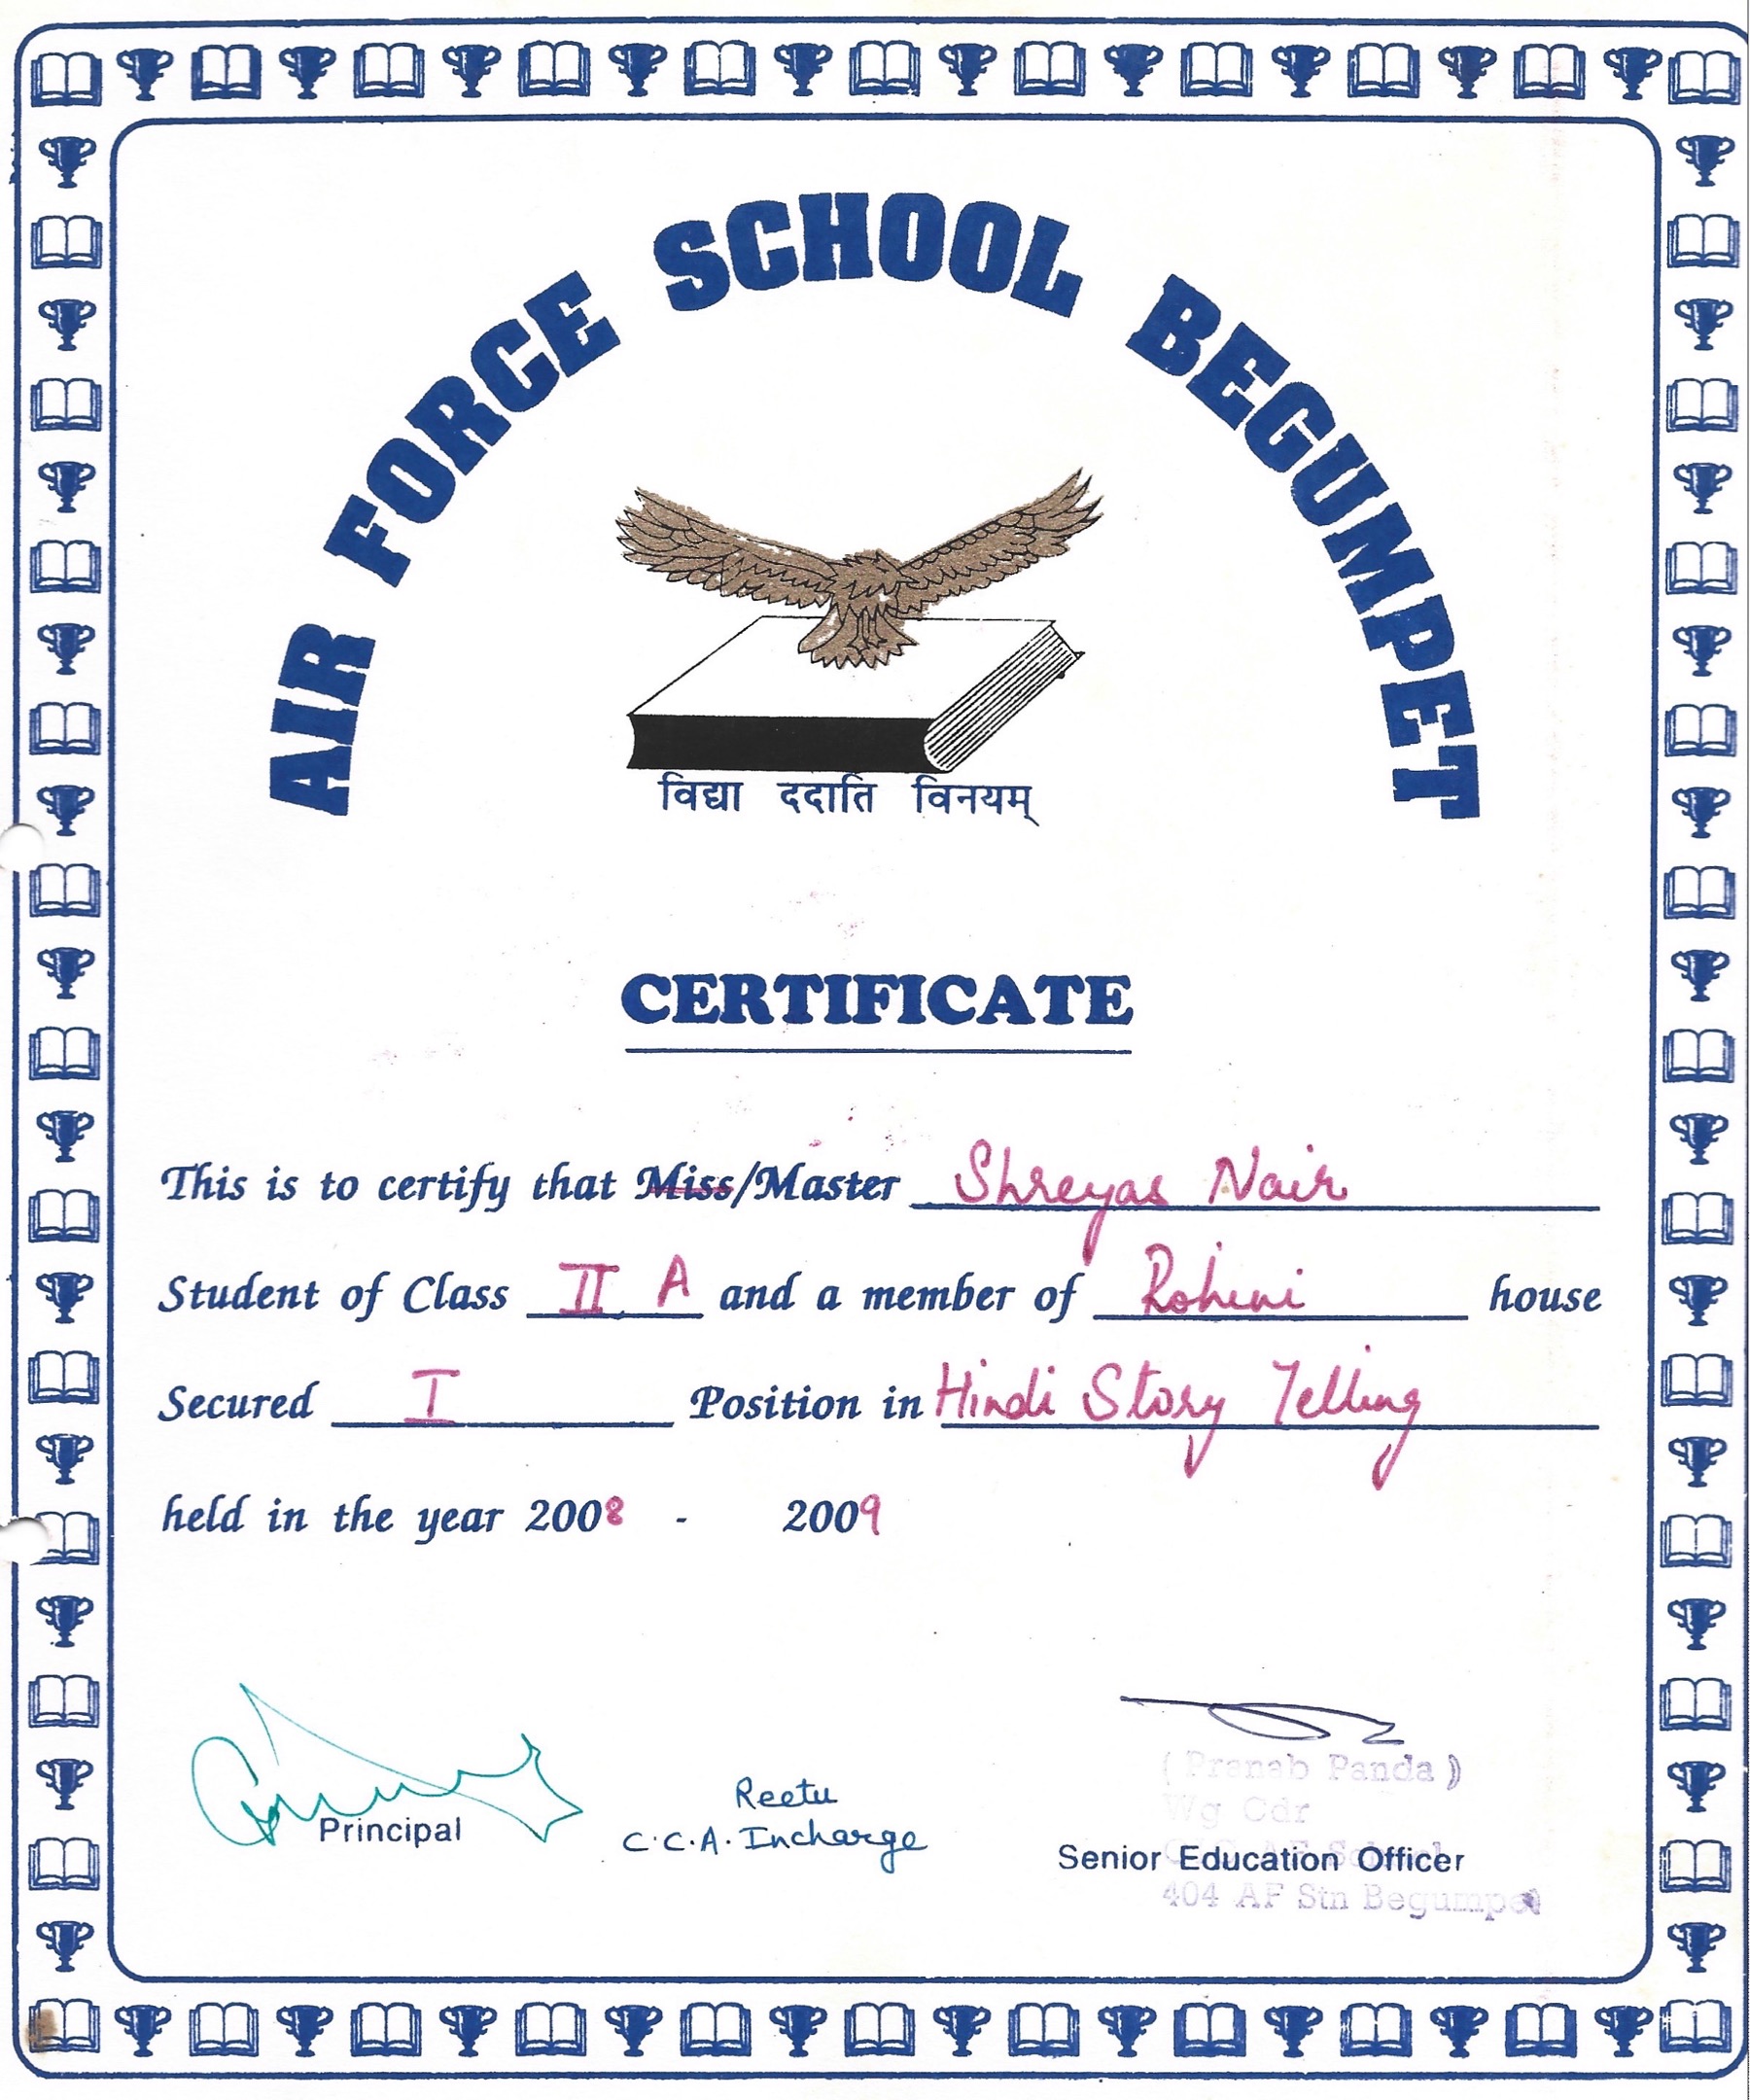 AIR FORCE SCHOOL BEGUMPET
विद्या ददाति विनयम्
CERTIFICATE
This is to certify that Miss/Master Shreyas Nair
Student of Class II A and a member of Rohini house
Secured I Position in Hindi Story Telling
held in the year 2008 - 2009
(Pranab Panda)
Wg Cdr
Reetu
Principal
C.C.A. Incharge
Senior Education Officer
404 AF Stn Begumpet